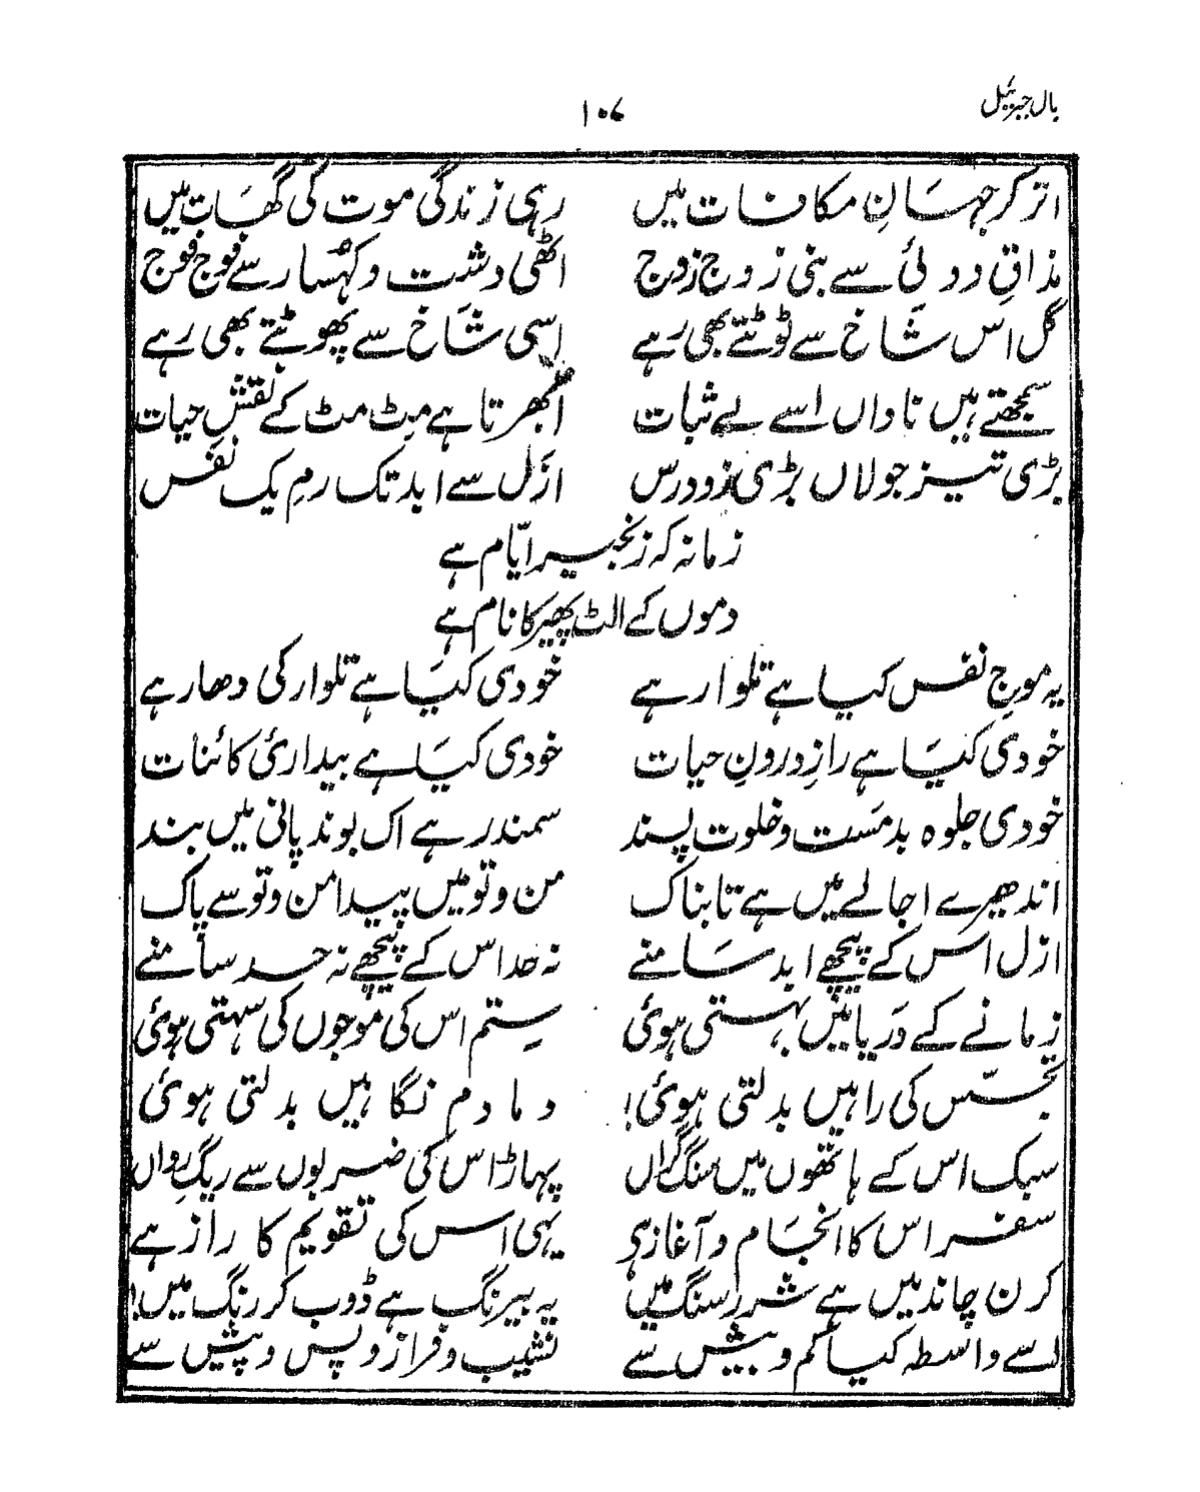 بال جبریل
۱۰۷
اتر کر جہانِ مکافات میں رہی زندگی موت کی گھات میں
مذاقِ دوئی سے بنی زوج زوج اٹھی دشت و کہسار سے فوج فوج
گل اس شاخ سے ٹوٹتے بھی رہے اسی شاخ سے پھوٹتے بھی رہے
سمجھتے ہیں ناداں اسے بے ثبات ابھرتا ہے مٹ مٹ کے نقشِ حیات
بڑی تیز جولاں بڑی زود رس ازل سے ابد تک رمِ یک نفس
زمانہ کہ زنجیر ایّام ہے
دموں کے الٹ پھیر کا نام ہے
یہ موجِ نفس کیا ہے تلوار ہے خودی کیا ہے تلوار کی دھار ہے
خودی کیا ہے رازِ درونِ حیات خودی کیا ہے بیداریٔ کائنات
خودی جلوہ بدمست و خلوت پسند سمندر ہے اک بوند پانی میں بند
اندھیرے اجالے میں ہے تابناک من و تو میں پیدا من و تو سے پاک
ازل اس کے پیچھے ابد سامنے نہ حد اس کے پیچھے نہ حد سامنے
زمانے کے دریا میں بہتی ہوئی ستم اس کی موجوں کی سہتی ہوئی
تجسّس کی راہیں بدلتی ہوئی! دمادم نگاہیں بدلتی ہوئی
سبک اس کے ہاتھوں میں سنگِ گراں پہاڑ اس کی ضربوں سے ریگِ رواں
سفر اس کا انجام و آغاز ہے یہی اس کی تقویم کا راز ہے
کرن چاند میں ہے شرر سنگ میں یہ بیرنگ ہے ڈوب کر رنگ میں!
اسے واسطہ کیا کم و بیش سے نشیب و فراز و پس و پیش سے